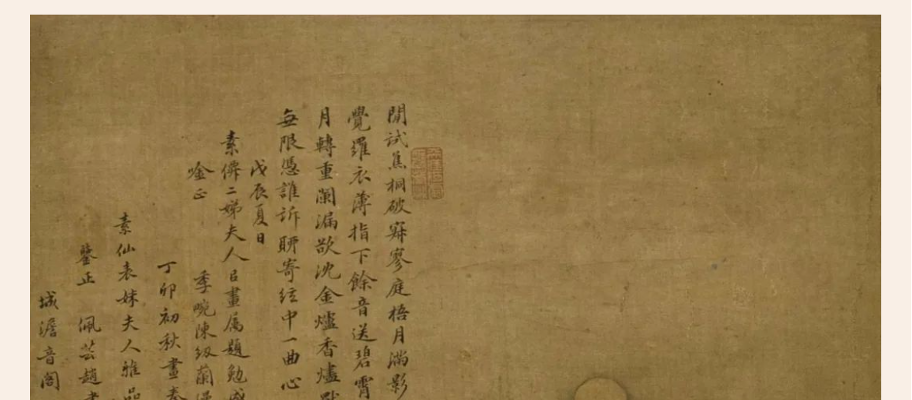 閒試蕉桐破寂寥庭梧月滿影
覺羅衣薄指下餘音送碧霄
月轉重闌漏欲沈金爐香燼
無限憑誰訴聊寄絃中一曲心
戊辰夏日
素僊二娣夫人以畫属題勉成
唫正
季晼陳級蘭
丁卯初秋畫奉
素仙表妹夫人雅品
鑒正
佩芸趙
城澹音閣